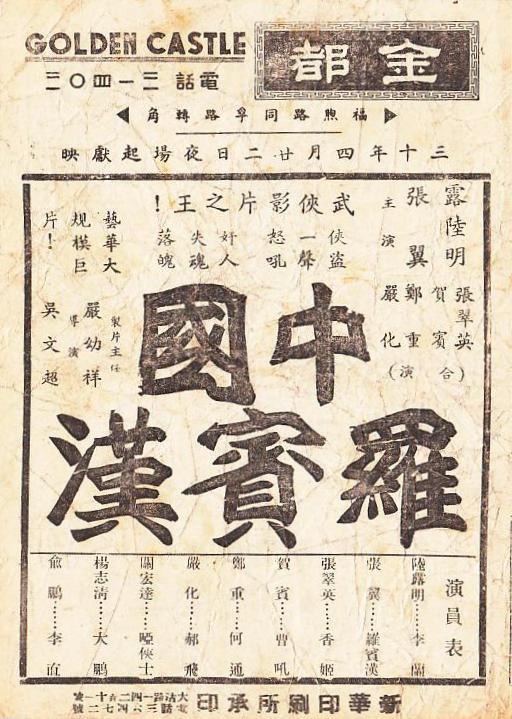 GOLDEN CASTLE
金都
電話三一四〇二
福煦路同孚路轉角
三十年四月廿二日夜場起獻映
武俠影片之王！
俠盜一聲怒吼
奸人失魂落魄
藝華大規模巨片！
主演
張翼
陸露明
張翠英
賀賓
鄭重
嚴化
（合演）
製片主任
嚴幼祥
導演
吳文超
中國
羅賓漢
演員表
陸露明……李蘭
張翼……羅賓漢
張翠英……香姬
賀賓……曹吼
鄭重……何通
嚴化……郝飛
關宏達……啞俠士
楊志清……大鵬
俞鵬……李直
新華印刷所承印